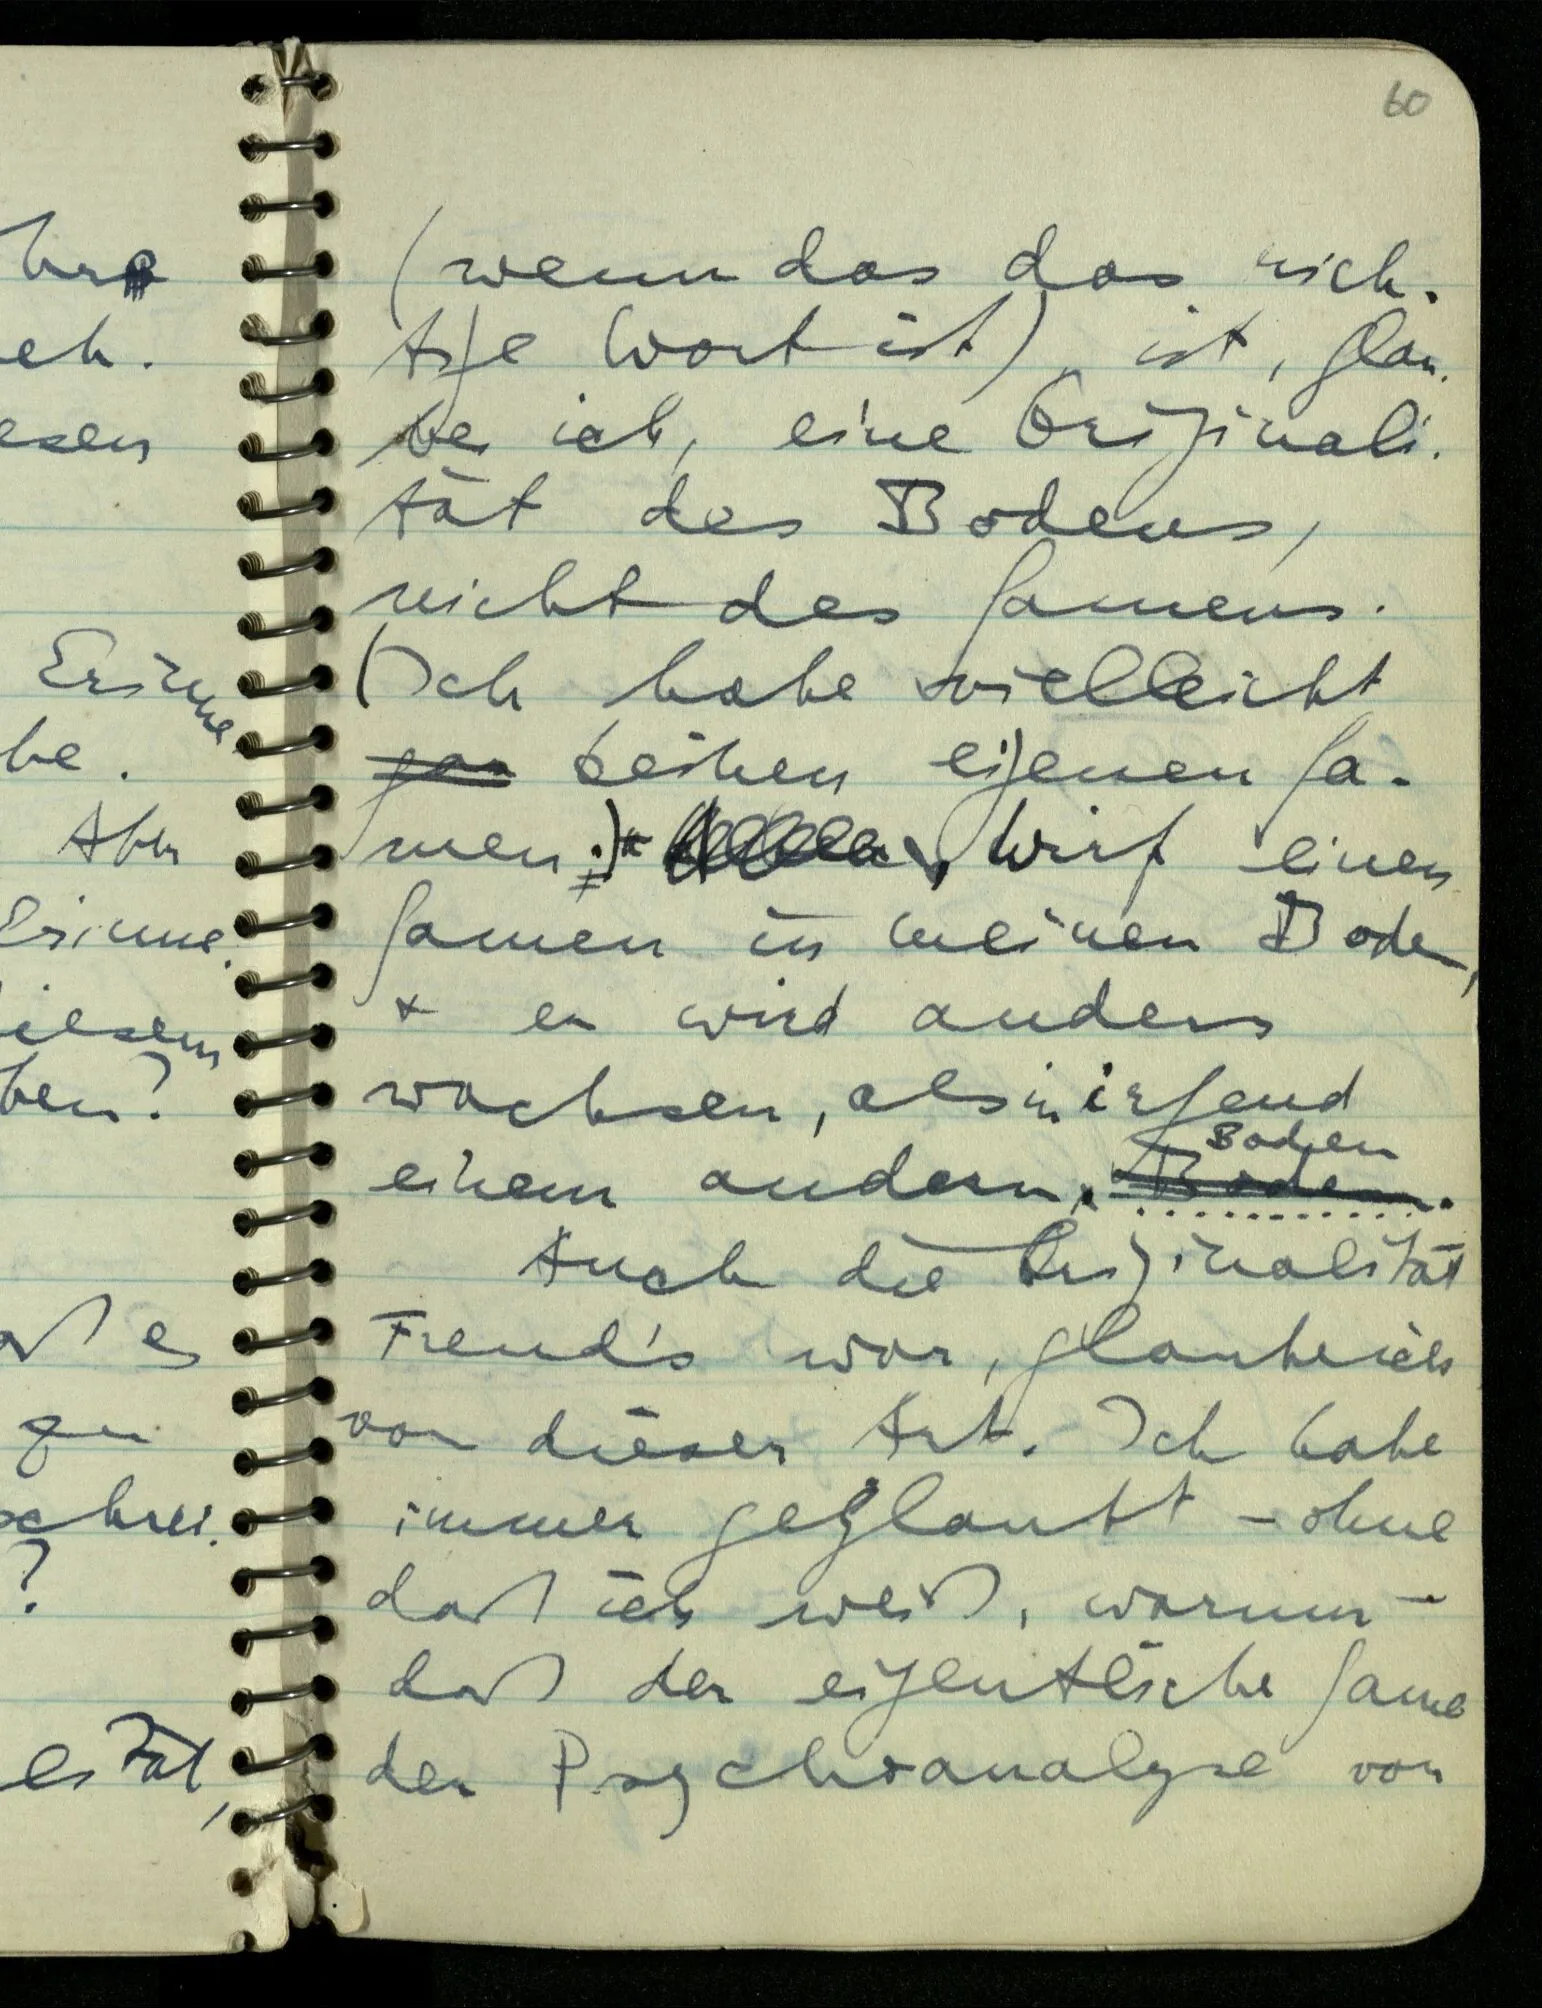 60
eh.
esen
Erinne
be.
Aber
Erinne.
diesem
ben?
aß es
zu
schrei.
?
(wenn das das rich-
tige Wort ist) ist, glau-
be ich, eine Originali-
tät des Bodens,
nicht des Samens.
(Ich habe vielleicht
gar keinen eigenen Sa-
men.) Wirf einen
Samen in meinen Boden,
+ er wird anders
wachsen, als in irgend
einem andern Boden
Boden.
Auch die Originalität
Freud's war, glaube ich
von dieser Art. Ich habe
immer geglaubt – ohne
daß ich weiß, warum –
daß der eigentliche Same
der Psychoanalyse von